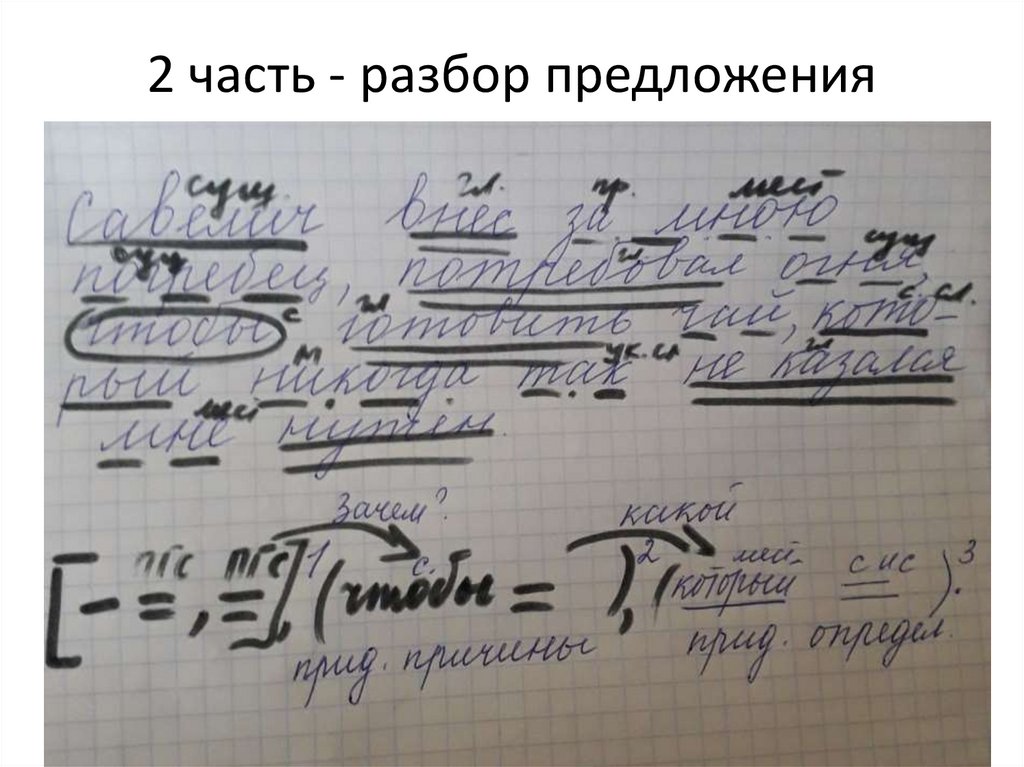 2 часть - разбор предложения
сущ. гл. пр. мест
Савелич внес за мною
сущ гл сущ
погребец, потребовал огня,
с гл с. сл.
чтобы готовить чай, кото-
м ук. сл гл
рый никогда так не казался
мест
мне нужен.
Зачем? какой
ПГС ПГС 1 с. 2 мест. СИС 3
[- =, =], (чтобы = ), (который ).
прид. причины прид. определ.